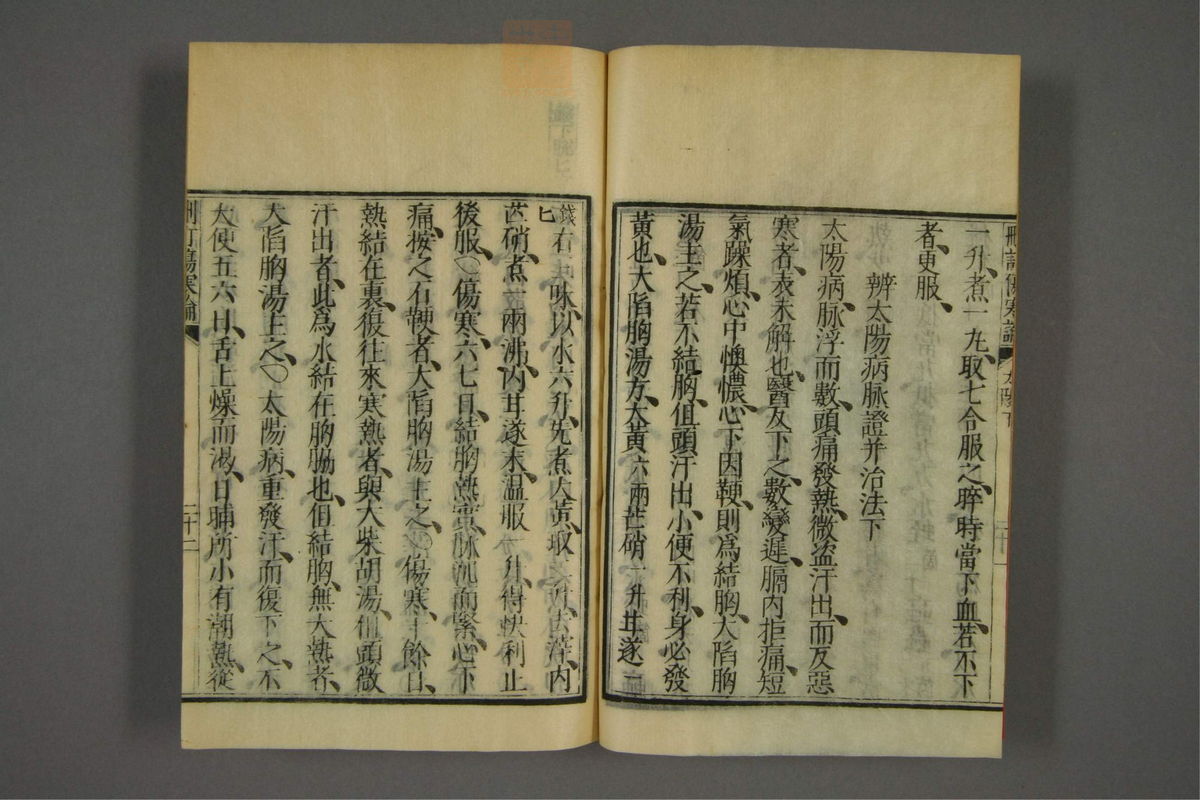 一升、煮一丸、取七合服之、晬時當下血、若不下
者、更服、
辨太陽病脉證并治法下
太陽病、脉浮而數、頭痛發熱、微盜汗出、而反惡
寒者、表未解也、醫反下之、數變遲、膈內拒痛、短
氣躁煩、心中懊憹、心下因鞕、則爲結胸、大陷胸
湯主之、若不結胸、但頭汗出、小便不利、身必發
黃也、大陷胸湯方、大黃六兩芒硝一升甘遂一
錢匕右三味、以水六升、先煮大黃、取二升、去滓、內
芒硝、煮一兩沸、內甘遂末、溫服一升、得快利止
後服、○傷寒、六七日、結胸熱實、脉沉而緊、心下
痛、按之石鞕者、大陷胸湯主之、○傷寒、十餘日、
熱結在裏、復往來寒熱者、與大柴胡湯、但頭微
汗出者、此爲水結在胸脇也、但結胸、無大熱者、
大陷胸湯主之、○太陽病、重發汗、而復下之、不
大便五六日、舌上燥而渴、日晡所小有潮熱、從
刪訂傷寒論